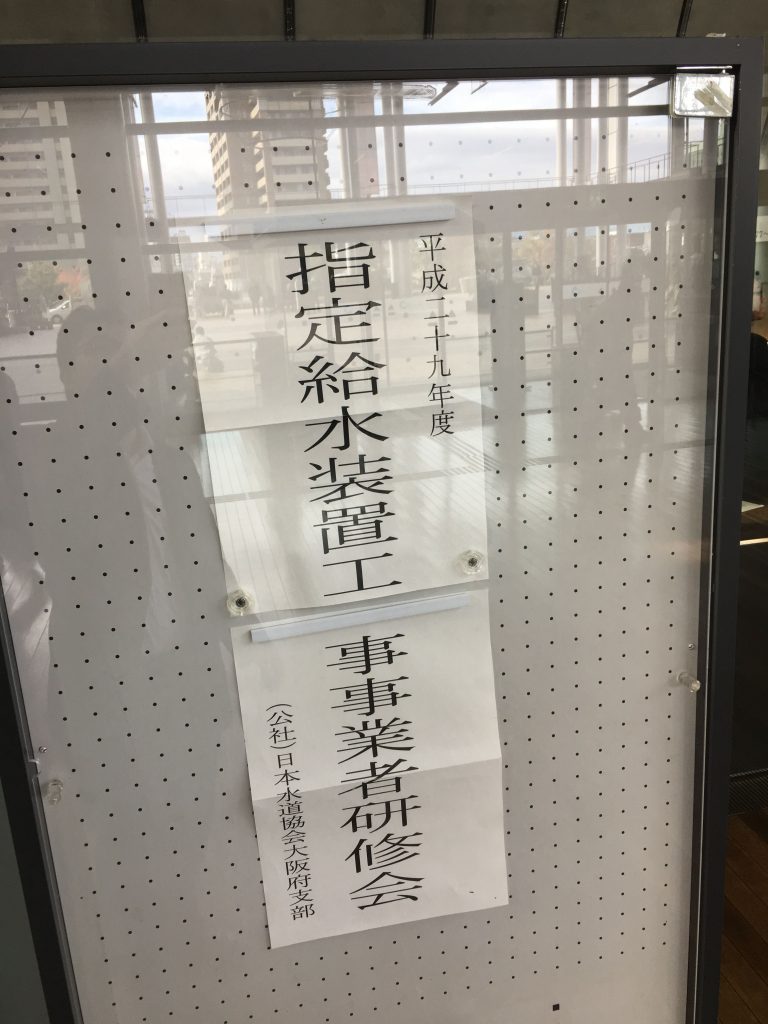 平成二十九年度
指定給水装置工事事業者研修会
(公社)日本水道協会大阪府支部